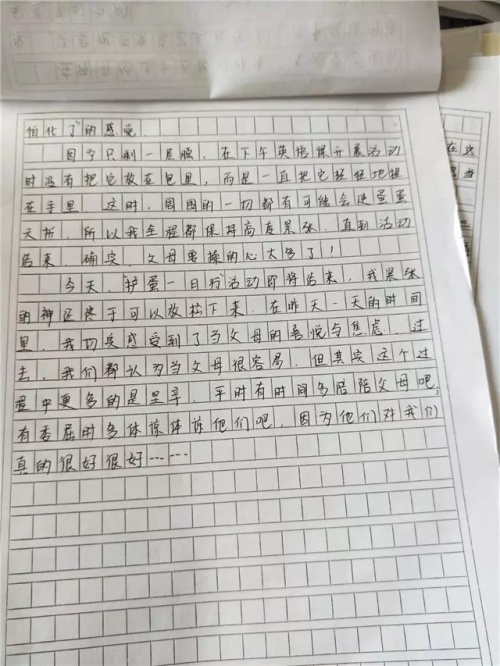 怕化了"的感觉.
因为只剩一层膜，在下午英语课开展活动
时没有把它放在包里，而是一直把它轻轻地握
在手里.这时，周围的一切都有可能会使蛋蛋
夭折，所以我全程都保持高度紧张，直到活动
结束.确实，父母要操的心太多了！
今天，"护蛋一日行"活动即将结束，我紧张
的神经终于可以放松下来.在昨天一天的时间
里，我切实感受到了当父母的喜悦与焦虑.过
去，我们都认为当父母很容易，但其实这个过
程中更多的是艰辛.平时有时间多陪陪父母吧，
有委屈时多体谅体谅他们吧，因为他们对我们
真的很好很好……